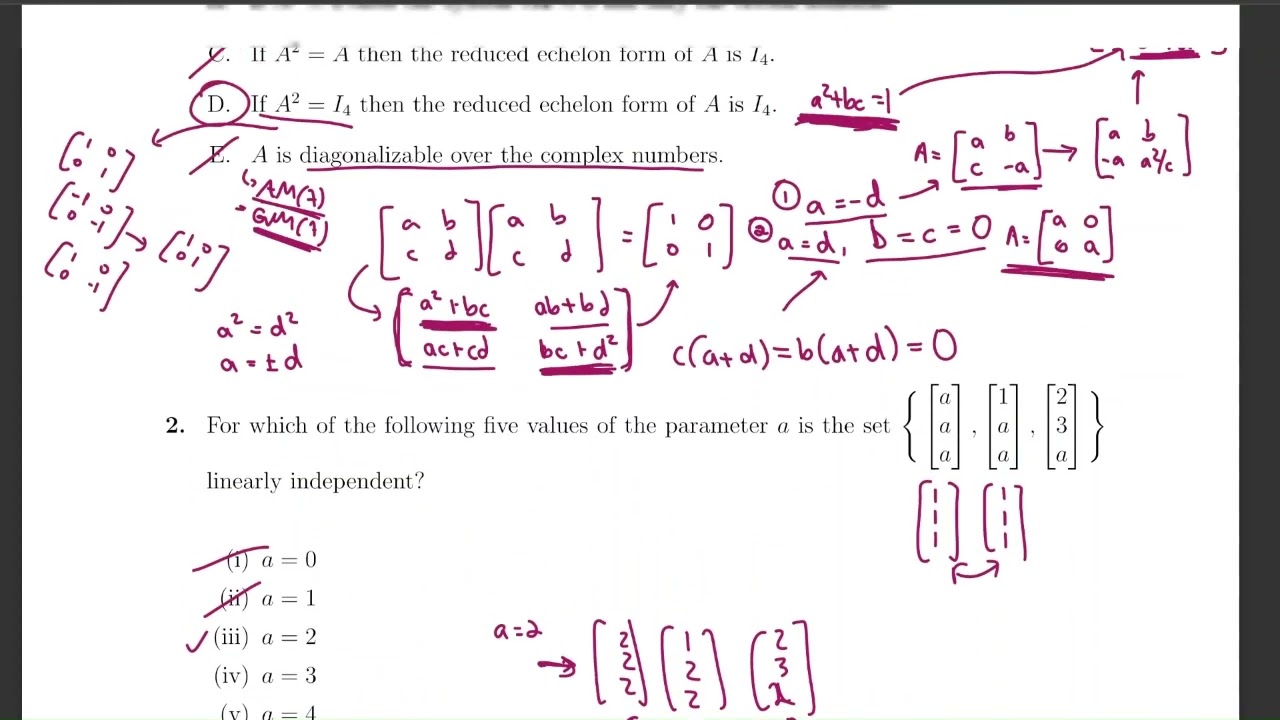 C. If A² = A then the reduced echelon form of A is I₄.
D. If A² = I₄ then the reduced echelon form of A is I₄. a²+bc=1
E. A is diagonalizable over the complex numbers.
[1 0; 0 1]
[-1 0; 0 -1] → [1 0; 0 1]
[1 0; 0 -1]
↳ AM(λ)
= GM(λ)
A = [a b; c -a] → [a b; -a a²/c]
[a b; c d] [a b; c d] = [1 0; 0 1]
① a = -d
② a = d, b = c = 0 A = [a 0; 0 a]
[a²+bc ab+bd; ac+cd bc+d²]
a² = d²
a = ± d
c(a+d) = b(a+d) = 0
2. For which of the following five values of the parameter a is the set { [a a a], [1 a a], [2 3 a] }
linearly independent?
[1 1 1] [1 1 1]
(i) a = 0
(ii) a = 1
✓ (iii) a = 2
(iv) a = 3
(v) a = 4
a=2
→ [2 2 2] [1 2 2] [2 3 2]